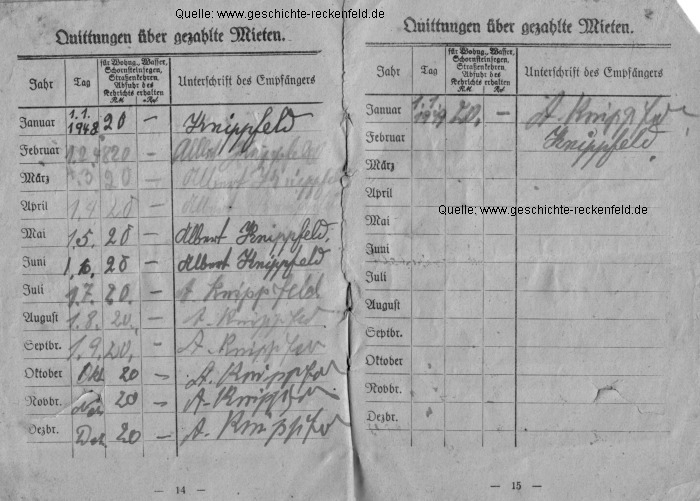 Quelle: www.geschichte-reckenfeld.de
Quittungen über gezahlte Mieten.
Jahr Tag für Wohng., Wasser, Schornsteinfegen, Straßenkehren, Abfuhr des Kehrichts erhalten RM Rpf Unterschrift des Empfängers
Januar 1.1. 1948 20 — Knippfeld
Februar 1.2.48 20 — Albert Knippfeld
März 1.3 20 — Albert Knippfeld
April 1.4 20 — Albert
Mai 1.5. 20 — Albert Knippfeld,
Juni 1.6. 20 — Albert Knippfeld
Juli 1.7. 20. — A Knippfeld
August 1.8. 20. — A. Knippfed
Septbr. 1.9. 20. — A. Knippfed
Oktober Okt 20 — A. Knippfed
Novbr. Nov 20 — A. Knippfed
Dezbr. Dez 20 — A. Knippfed
— 14 —
Quittungen über gezahlte Mieten.
Jahr Tag für Wohng., Wasser, Schornsteinfegen, Straßenkehren, Abfuhr des Kehrichts erhalten RM Rpf Unterschrift des Empfängers
Januar 1.1. 1949 20. — A. Knippfed
Februar Knippfeld.
März
April
Quelle: www.geschichte-reckenfeld.de
Mai
Juni
Juli
August
Septbr.
Oktober
Novbr.
Dezbr.
— 15 —